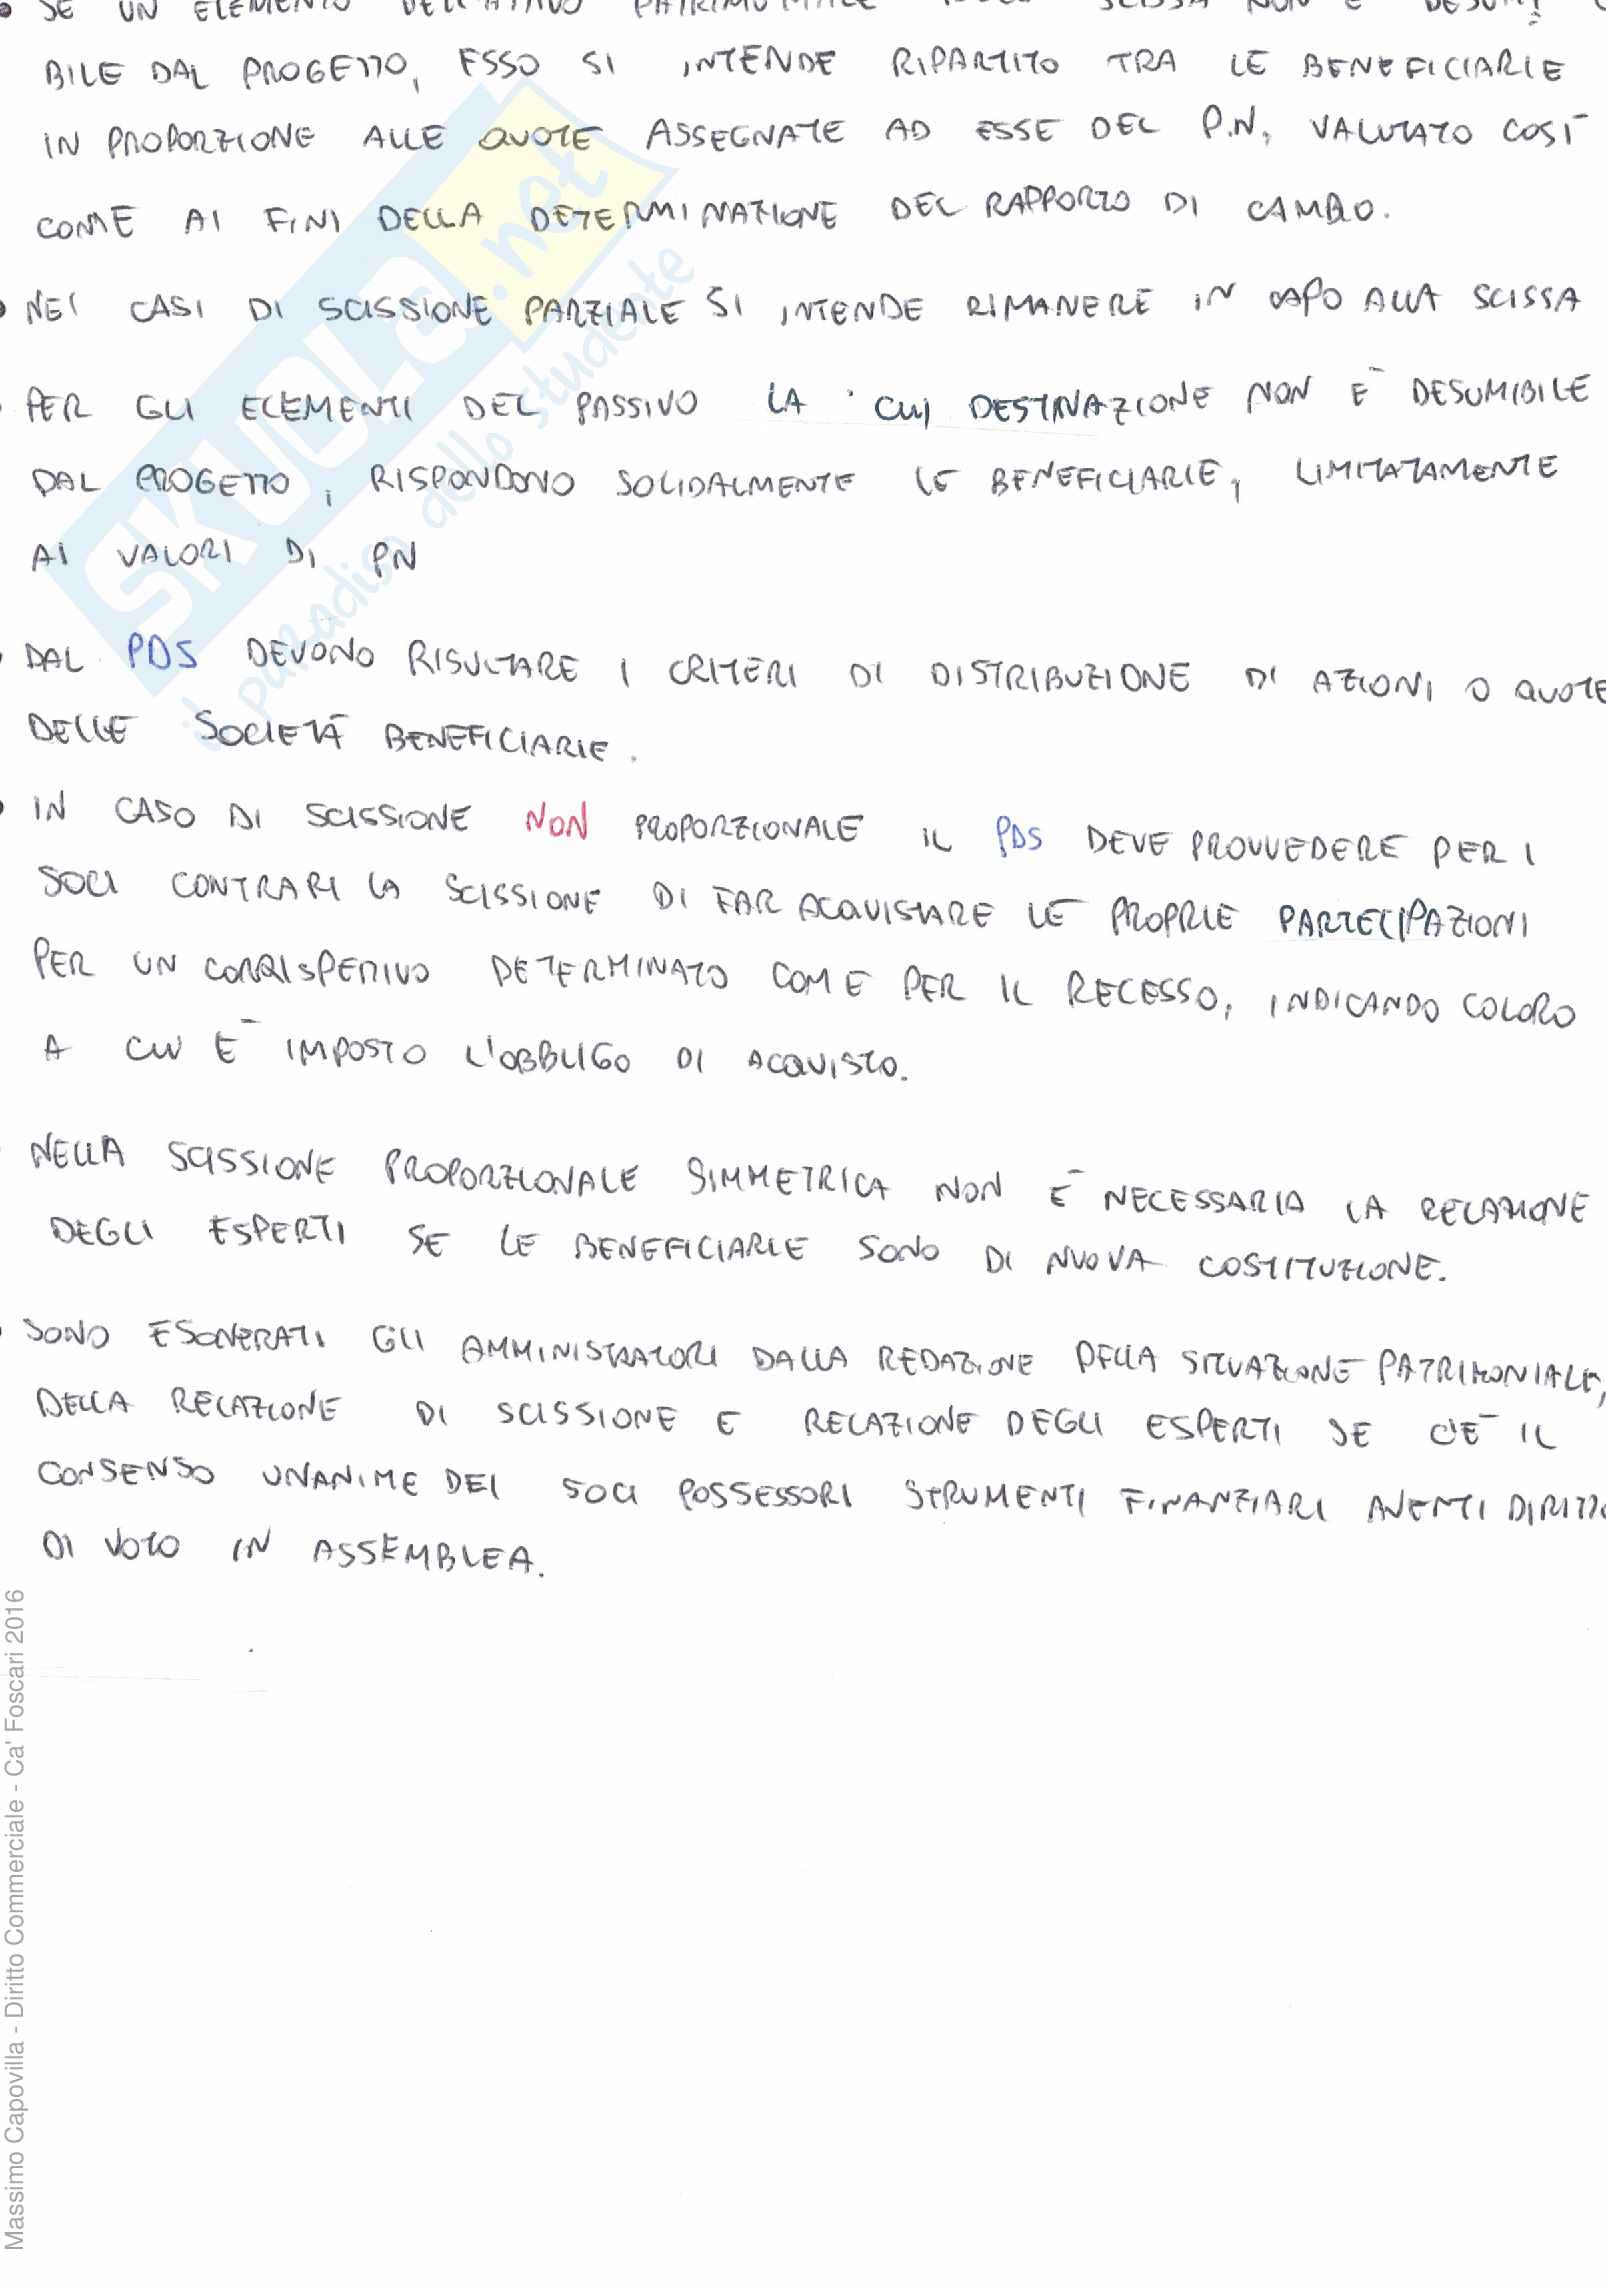 • SE UN ELEMENTO DELL'ATTIVO PATRIMONIALE SCISSA NON È DESUMI
BILE DAL PROGETTO, ESSO SI INTENDE RIPARTITO TRA LE BENEFICIARIE
IN PROPORZIONE ALLE QUOTE ASSEGNATE AD ESSE DEL P.N, VALUTATO COSÌ
COME AI FINI DELLA DETERMINAZIONE DEL RAPPORTO DI CAMBIO.
• NEI CASI DI SCISSIONE PARZIALE SI INTENDE RIMANERE IN CAPO ALLA SCISSA
• PER GLI ELEMENTI DEL PASSIVO LA CUI DESTINAZIONE NON È DESUMIBILE
DAL PROGETTO, RISPONDONO SOLIDALMENTE LE BENEFICIARIE, LIMITATAMENTE
AI VALORI DI PN
• DAL PDS DEVONO RISULTARE I CRITERI DI DISTRIBUZIONE DI AZIONI O QUOTE
DELLE SOCIETÀ BENEFICIARIE.
• IN CASO DI SCISSIONE NON PROPORZIONALE IL PDS DEVE PROVVEDERE PER I
SOCI CONTRARI LA SCISSIONE DI FAR ACQUISTARE LE PROPRIE PARTECIPAZIONI
PER UN CORRISPETTIVO DETERMINATO COME PER IL RECESSO, INDICANDO COLORO
A CUI È IMPOSTO L'OBBLIGO DI ACQUISTO.
• NELLA SCISSIONE PROPORZIONALE SIMMETRICA NON È NECESSARIA LA RELAZIONE
DEGLI ESPERTI SE LE BENEFICIARIE SONO DI NUOVA COSTITUZIONE.
• SONO ESONERATI GLI AMMINISTRATORI DALLA REDAZIONE DELLA SITUAZIONE PATRIMONIALE,
DELLA RELAZIONE DI SCISSIONE E RELAZIONE DEGLI ESPERTI SE C'È IL
CONSENSO UNANIME DEI SOCI POSSESSORI STRUMENTI FINANZIARI AVENTI DIRITTO
DI VOTO IN ASSEMBLEA.
SKUOLA.net
il paradiso dello studente
Massimo Capovilla - Diritto Commerciale - Ca' Foscari 2016